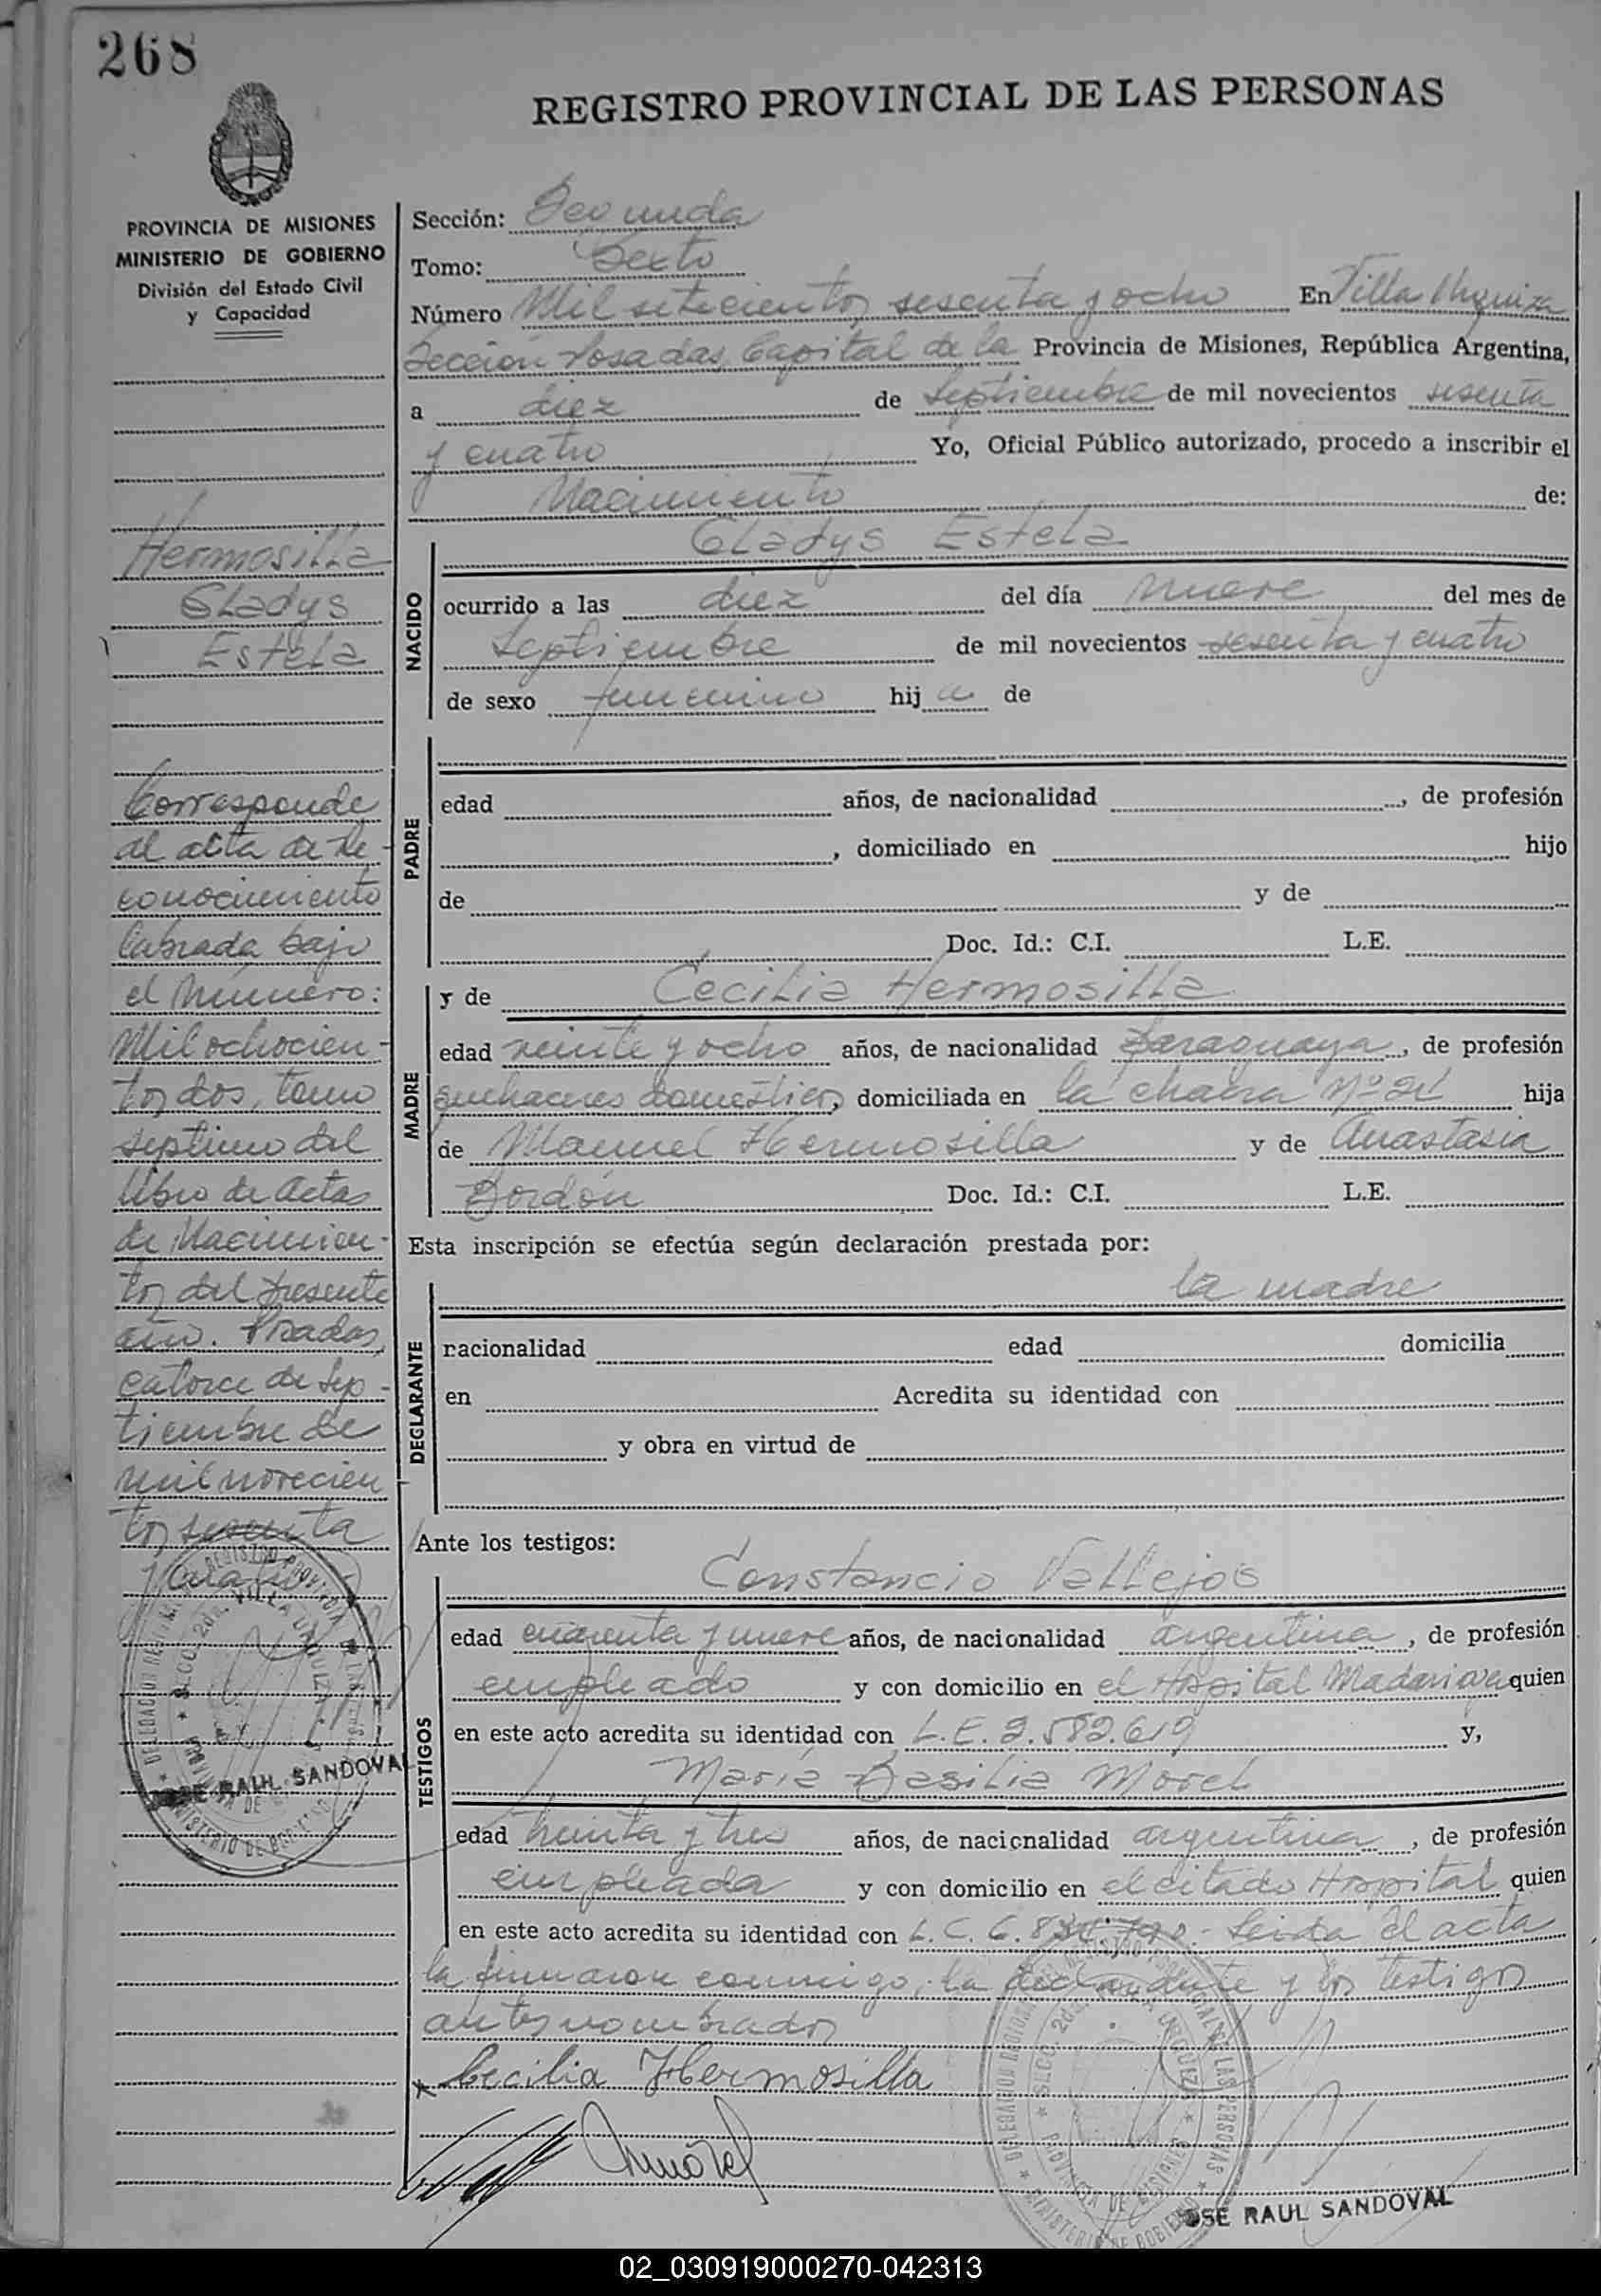 268
REGISTRO PROVINCIAL DE LAS PERSONAS
PROVINCIA DE MISIONES
MINISTERIO DE GOBIERNO
División del Estado Civil
y Capacidad
Hermosilla
Gladys
Estela
Corresponde
al acta de Re-
conocimiento
labrada bajo
el número:
Mil ochocien-
tos dos, tomo
séptimo del
libro de actas
de Nacimien-
tos del presente
año. Posadas,
catorce de sep-
tiembre de
mil novecien
tos sesenta
y cuatro
JOSE RAUL SANDOVAL
Sección: Segunda
Tomo: Sexto
Número Mil setecientos sesenta y ocho En Villa Urquiza
Sección Posadas, Capital de la Provincia de Misiones, República Argentina,
a diez de Septiembre de mil novecientos sesenta
y cuatro Yo, Oficial Público autorizado, procedo a inscribir el
Nacimiento de:
NACIDO
Gladys Estela
ocurrido a las diez del día nueve del mes de
Septiembre de mil novecientos sesenta y cuatro
de sexo femenino hij a de
PADRE
edad años, de nacionalidad , de profesión
, domiciliado en hijo
de y de
Doc. Id.: C.I. L.E.
MADRE
y de Cecilia Hermosilla
edad veinte y ocho años, de nacionalidad paraguaya, de profesión
quehaceres domésticos, domiciliada en la chacra Nº hija
de Manuel Hermosilla y de Anastasia
Bordón Doc. Id.: C.I. L.E.
Esta inscripción se efectúa según declaración prestada por:
DECLARANTE
la madre
nacionalidad edad domicilia
en Acredita su identidad con
y obra en virtud de
Ante los testigos:
TESTIGOS
Constancio Vallejos
edad cuarenta y nueve años, de nacionalidad argentina, de profesión
empleado y con domicilio en el Hospital Madariaga quien
en este acto acredita su identidad con L.E. 2.582.619 y,
María Basilia Morel
edad treinta y tres años, de nacionalidad argentina, de profesión
empleada y con domicilio en el citado Hospital quien
en este acto acredita su identidad con L.C. 6. Leida el acta
la firmaron conmigo, la declarante y los testigos
antes nombrados
x Cecilia Hermosilla
JOSE RAUL SANDOVAL
02_030919000270-042313